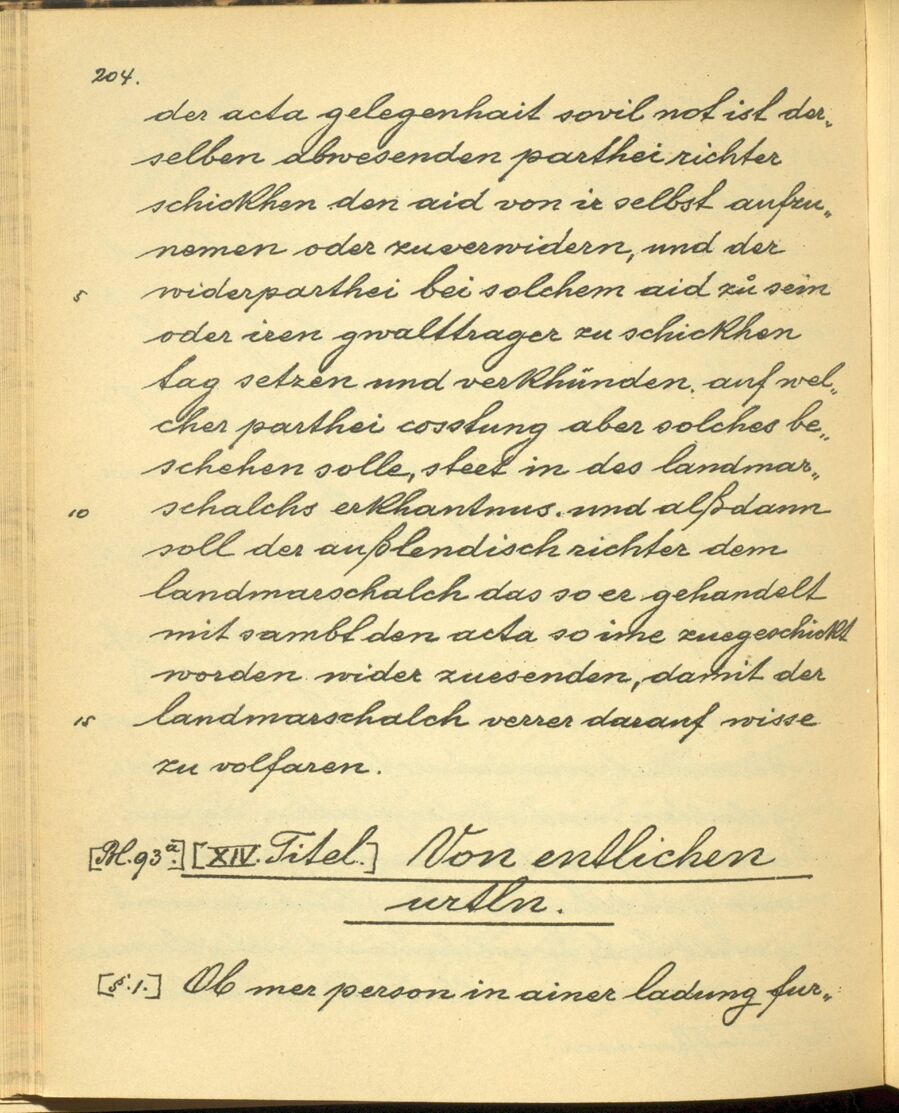 204.
der acta gelegenhait sovil not ist der„
selben abwesenden parthei richter
schickhen den aid von ir selbst aufzu„
nemen oder zuverwidern, und der
5 widerparthei bei solchem aid zů sein
oder iren gwalttrager zu schickhen
tag setzen und verkhünden. auf wel„
cher parthei cosstung aber solches be„
schehen solle, steet in des landmar„
10 schalchs erkhantnus. und alßdann
soll der außlendisch richter dem
landmarschalch das so er gehandelt
mit sambt den acta so ime zuegeschickt
worden wider zuesenden, damit der
15 landmarschalch verrer darauf wisse
zu volfaren.
[Bl. 93a.] [XIV. Titel.] Von entlichen
urtln.
[§.1.] Ob mer person in ainer ladung fur„